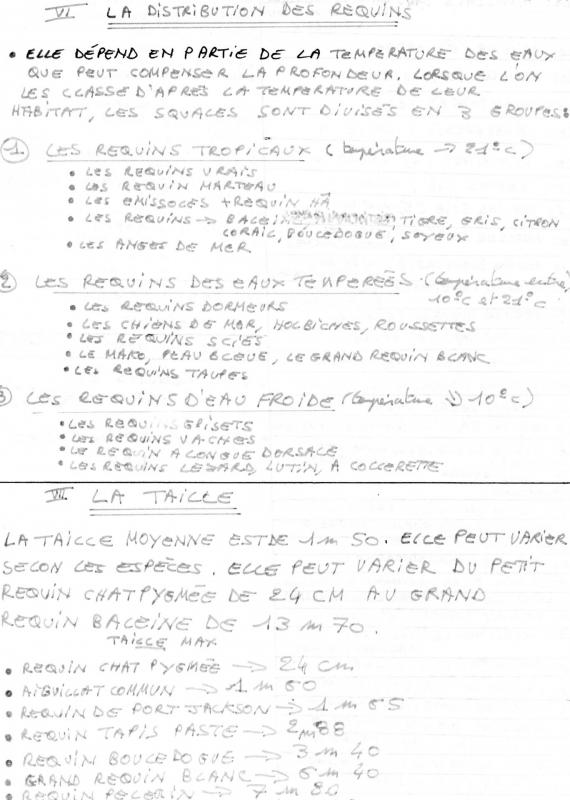 VI LA DISTRIBUTION DES REQUINS
• ELLE DÉPEND EN PARTIE DE LA TEMPERATURE DES EAUX
QUE PEUT COMPENSER LA PROFONDEUR. LORSQUE L'ON
LES CLASSE D'APRÈS LA TEMPERATURE DE LEUR
HABITAT, LES SQUALES SONT DIVISÉS EN 3 GROUPES:
1. LES REQUINS TROPICAUX (température → 21°c)
• LES REQUINS VRAIS
• LES REQUIN MARTEAU
• LES EMISSOLES + REQUIN HÂ
• LES REQUINS → BALEINE TIGRE, GRIS, CITRON
CORAIL, BOULEDOGUE, SOYEUX
• LES ANGES DE MER
2 LES REQUINS DES EAUX TEMPEREÉS (température entre
10°c et 21°c
• LES REQUINS DORMEURS
• LES CHIENS DE MER, HOLBICHES, ROUSSETTES
• LES REQUINS SCIES
• LE MAKO, PEAU BLEUE, LE GRAND REQUIN BLANC
• LES REQUINS TAUPES
3 LES REQUINS D'EAU FROIDE (température ↓ 10°c)
• LES REQUINS GRISETS
• LES REQUINS VACHES
• LE REQUIN A LONGUE DORSALE
• LES REQUINS LEZARD, LUTIN, A COLLERETTE
VII LA TAILLE
LA TAILLE MOYENNE EST DE 1 m 50. ELLE PEUT VARIER
SELON LES ESPÈCES. ELLE PEUT VARIER DU PETIT
REQUIN CHAT PYGMÉE DE 24 CM AU GRAND
REQUIN BALEINE DE 13 m 70.
TAILLE MAX
• REQUIN CHAT PYGMÉE → 24 cm
• AIGUILLAT COMMUN → 1 m 60
• REQUIN DE PORT JACKSON → 1 m 65
• REQUIN TAPIS PASTE → 2m88
• REQUIN BOULEDOGUE → 3 m 40
• GRAND REQUIN BLANC → 6 m 40
• REQUIN PELERIN → 7 m 80